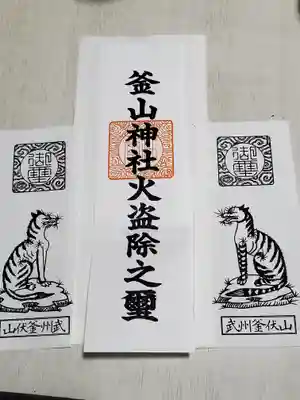 釜山神社火盗除之璽
御璽
武州釜伏山
御璽
武州釜伏山